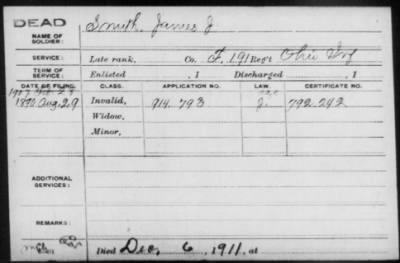 DEAD
NAME OF SOLDIER: Smith, James J.
SERVICE: Late rank, Co. F, 191 Reg't Ohio Inf
TERM OF SERVICE: Enlisted , 1 Discharged , 1
DATE OF FILING. CLASS. APPLICATION NO. LAW. CERTIFICATE NO.
1890 Aug. 29 Invalid, 914.793 J. 792.242
Widow,
Minor,
ADDITIONAL SERVICES:
REMARKS:
Died Dec, 6, 1911, at